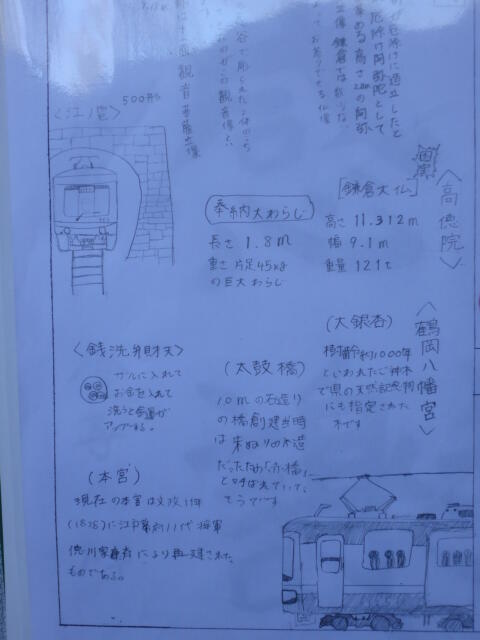 のが厄除けに造立したと
厄除け阿弥陀として
高さ
の阿弥
立像 鎌倉では数少ない
仏像
観音菩薩立像
500形
〈江ノ電〉
国宝
〈高徳院〉
[鎌倉大仏]
高さ 11.312m
幅 9.1m
重量 121t
奉納大わらじ
長さ 1.8m
重さ 片足45kg
の巨大わらじ
〈鶴岡八幡宮〉
(大銀杏)
樹齢約1000年
といわれたご神木
で県の天然記念物
にも指定された
木です
(太鼓橋)
10mの石造り
の橋創建当時
は朱ぬりの木造
だったため「赤橋」
と呼ばれていた
そうです
〈銭洗弁財天〉
ザルに入れて
お金を入れて
洗うと金運が
アップする。
(本宮)
現在の本宮は文政11年
(1828)に江戸幕府11代将軍
徳川家斉により再建された
ものである。